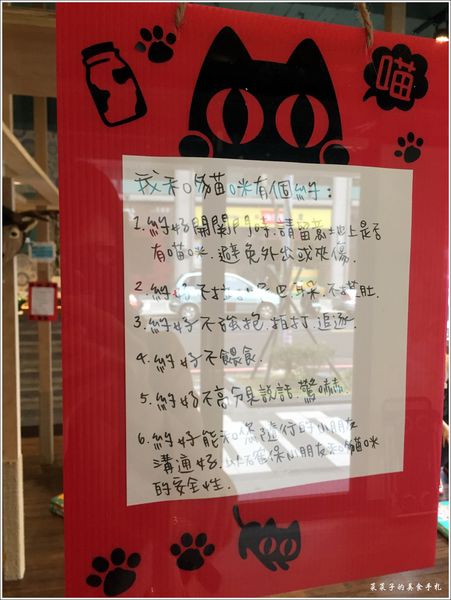 喵
我和貓咪有個約:
1. 約好開關門時.請留意地上是否
有喵咪.避免外出或夾傷.
2. 約好不拉尾巴耳朵.不摸肚.
3. 約好不強抱.拍打.追逐.
4. 約好不餵食.
5. 約好不高分貝說話.驚嚇
6. 約好能和您隨行的小朋友
溝通好.以確保小朋友和貓咪
的安全性.
菜菜子的美食手札